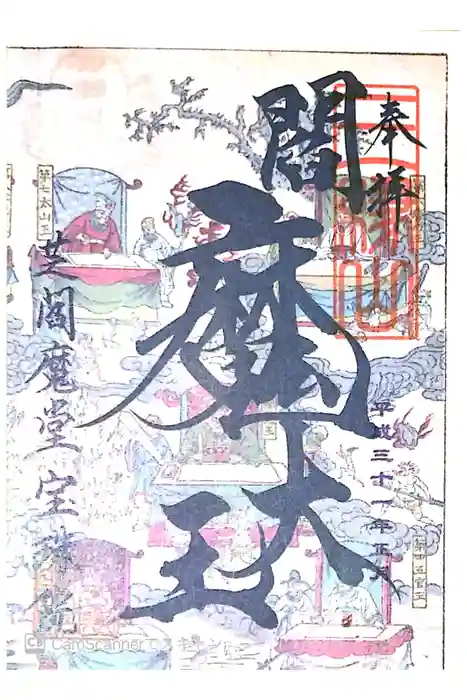 奉拝
閻魔大王
平成三十一年正月
芝閻魔堂宝珠院
第七太山王
第四五官王
CamScanner でスキャン